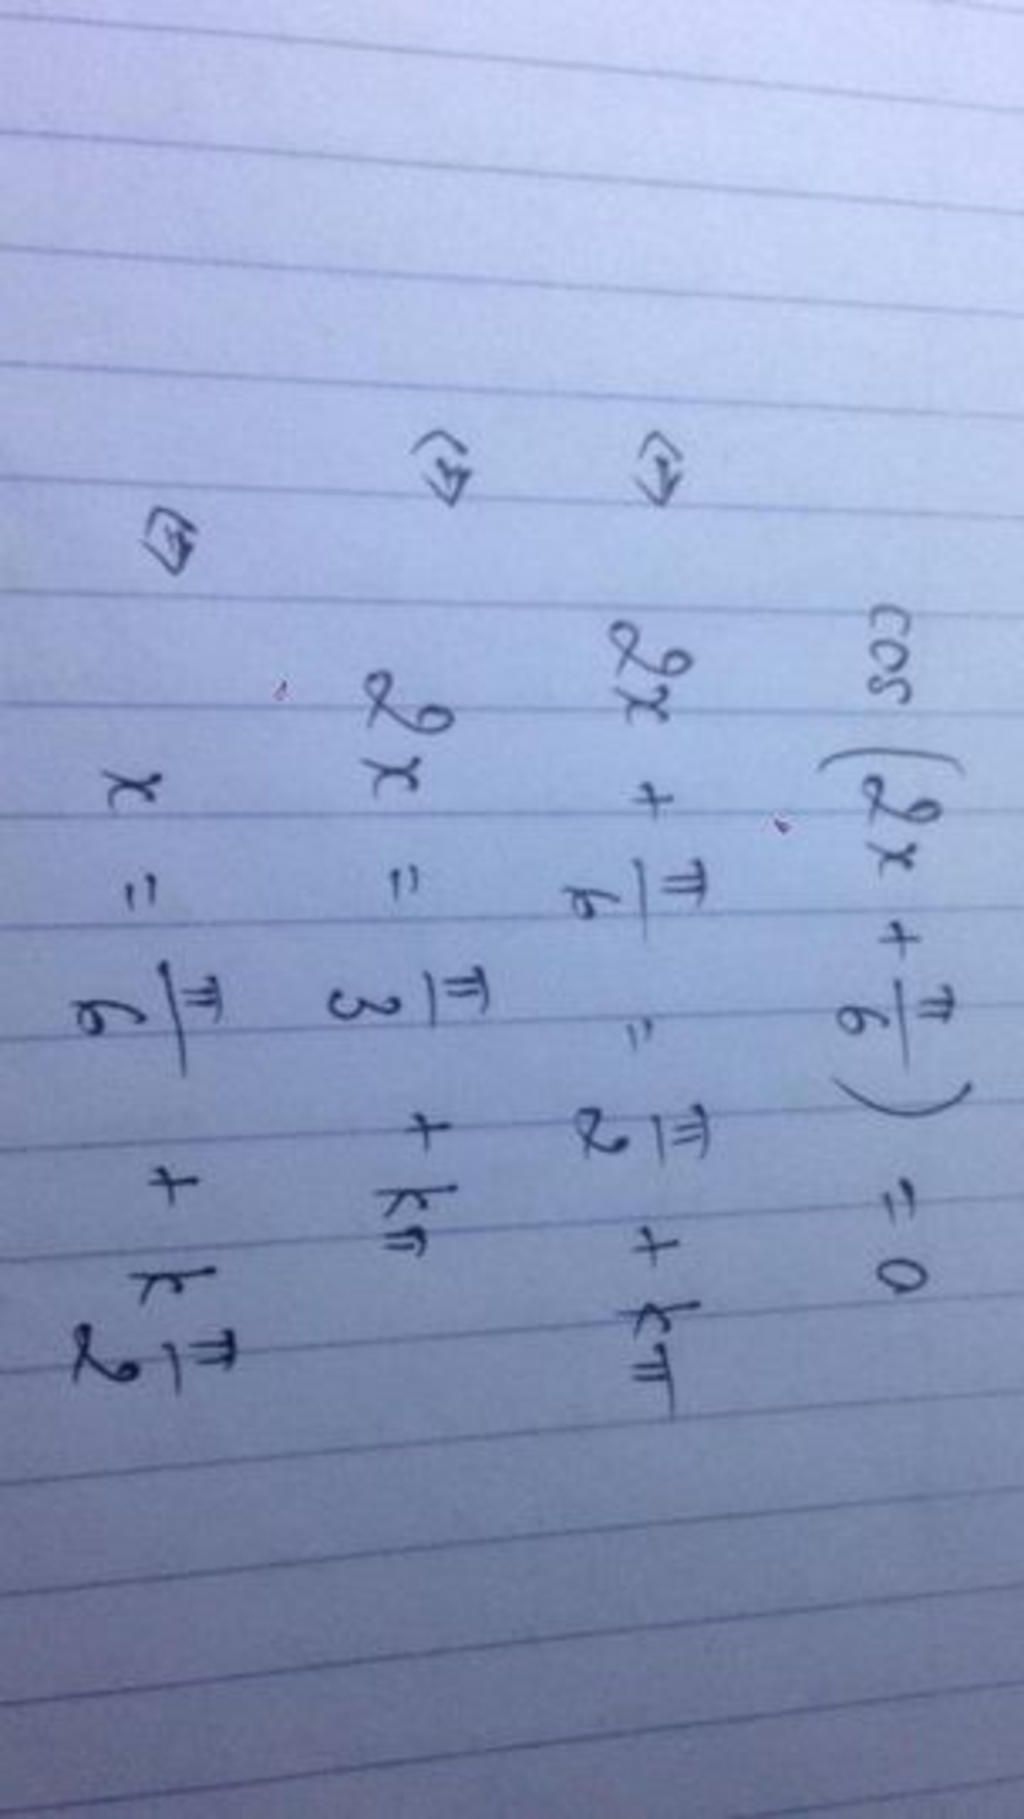 cos(2x + π/6) = 0
⇔ 2x + π/6 = π/2 + kπ
⇔ 2x = π/3 + kπ
⇔ x = π/6 + k π/2